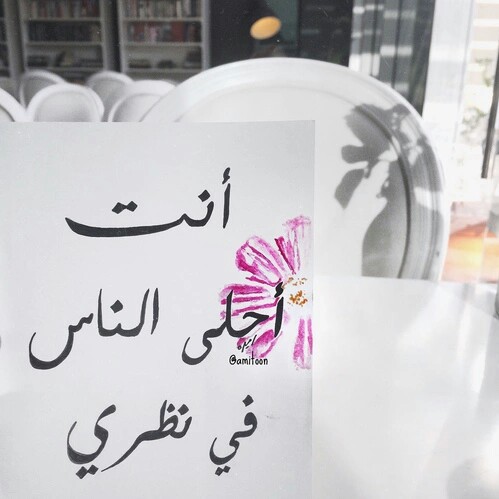 أنت
أحلى الناس
@amitoon
في نظري